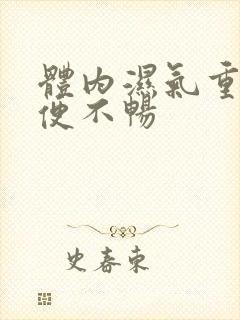 體內濕氣重
便不暢
史春東